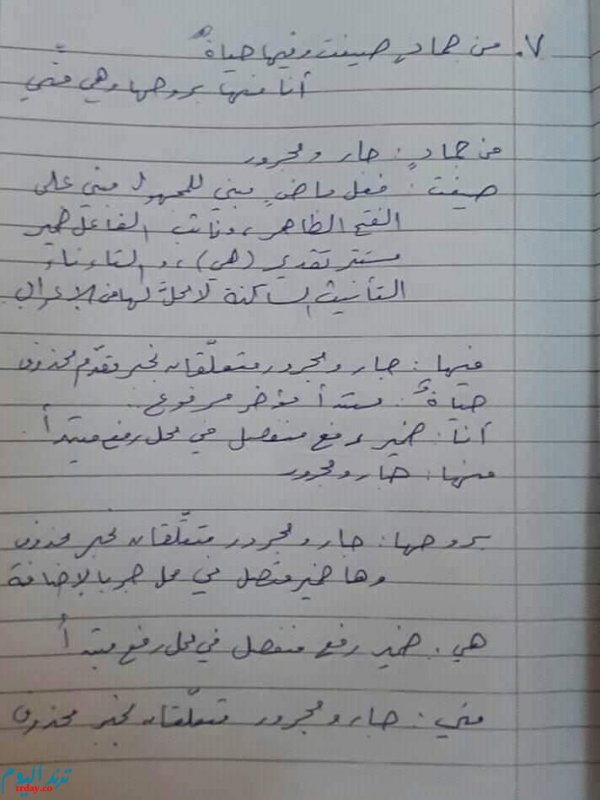 ٧. من جمادٍ صيغت وفيها حياةٌ
أنا منها بروحها وهي منّي
من جمادٍ: جار ومجرور
صيغت: فعل ماضٍ مبني للمجهول مبني على
الفتح الظاهر، ونائب الفاعل ضمير
مستتر تقديره (هي)، والتاء تاء
التأنيث الساكنة لا محلّ لها من الإعراب
فيها: جار ومجرور متعلّقان بخبر مقدّم محذوف
حياةٌ: مبتدأ مؤخر مرفوع.
أنا: ضمير رفع منفصل في محل رفع مبتدأ
منها: جار ومجرور
بروحها: جار ومجرور متعلّقان بخبر محذوف
وها ضمير متصل في محل جر بالإضافة
هي: ضمير رفع منفصل في محل رفع مبتدأ
مني: جار ومجرور متعلّقان بخبر محذوف
ترند اليوم
trday.co